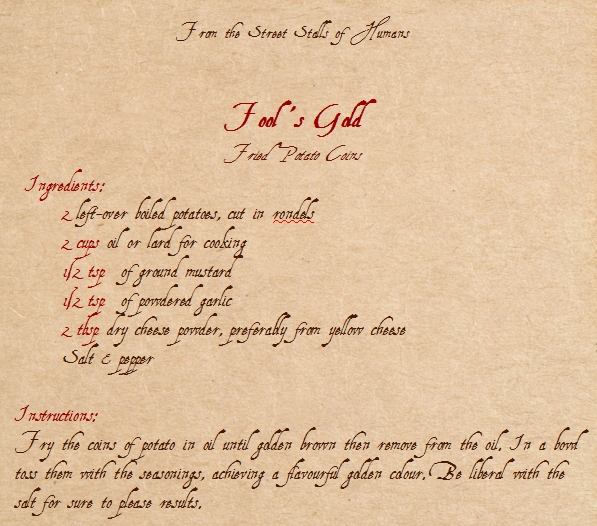 From the Street Stalls of Humans
Fool's Gold
Fried Potato Coins
Ingredients:
2 left-over boiled potatoes, cut in rondels
2 cups oil or lard for cooking
1/2 tsp of ground mustard
1/2 tsp of powdered garlic
2 tbsp dry cheese powder, preferably from yellow cheese
Salt & pepper
Instructions:
Fry the coins of potato in oil until golden brown then remove from the oil. In a bowl
toss them with the seasonings, achieving a flavourful golden colour. Be liberal with the
salt for sure to please results.